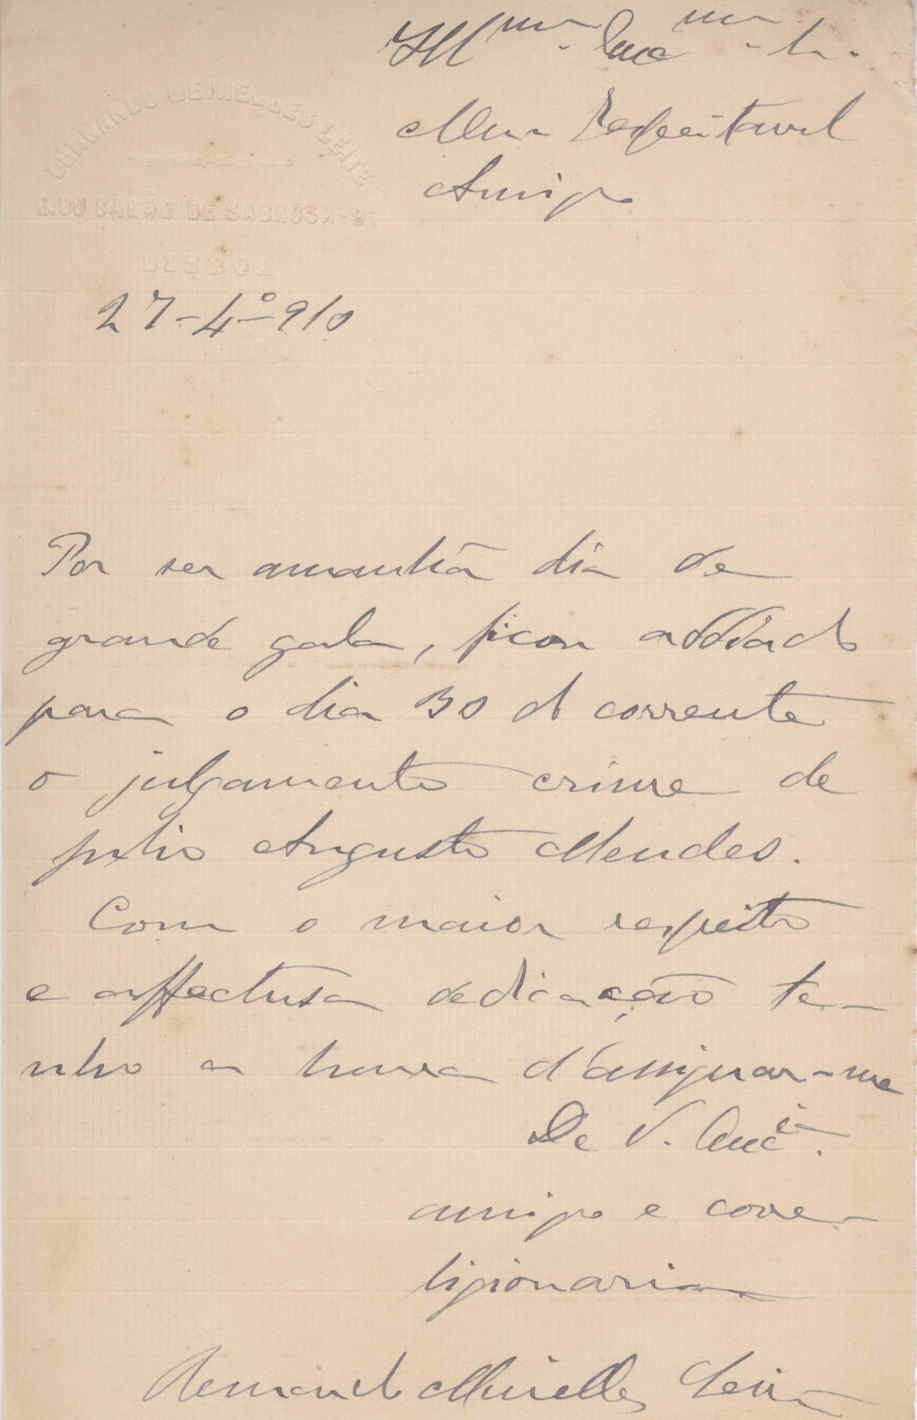 Illmo. Excmo. Sr.
Meu Respeitavel
Amigo
MEIRELLES LEITE
R. DO BARÃO DE SABROSA-
LISBOA
27-4º-910
Por ser amanhã dia de
grande gala, ficou addiado
para o dia 30 do corrente
o julgamento crime de
Julio Augusto Mendes.
Com o maior respeito
e affectuosa dedicação te-
nho a honra d'assignar-me
De V. Excia.
amigo e corre-
ligionario
Meirelles Leite